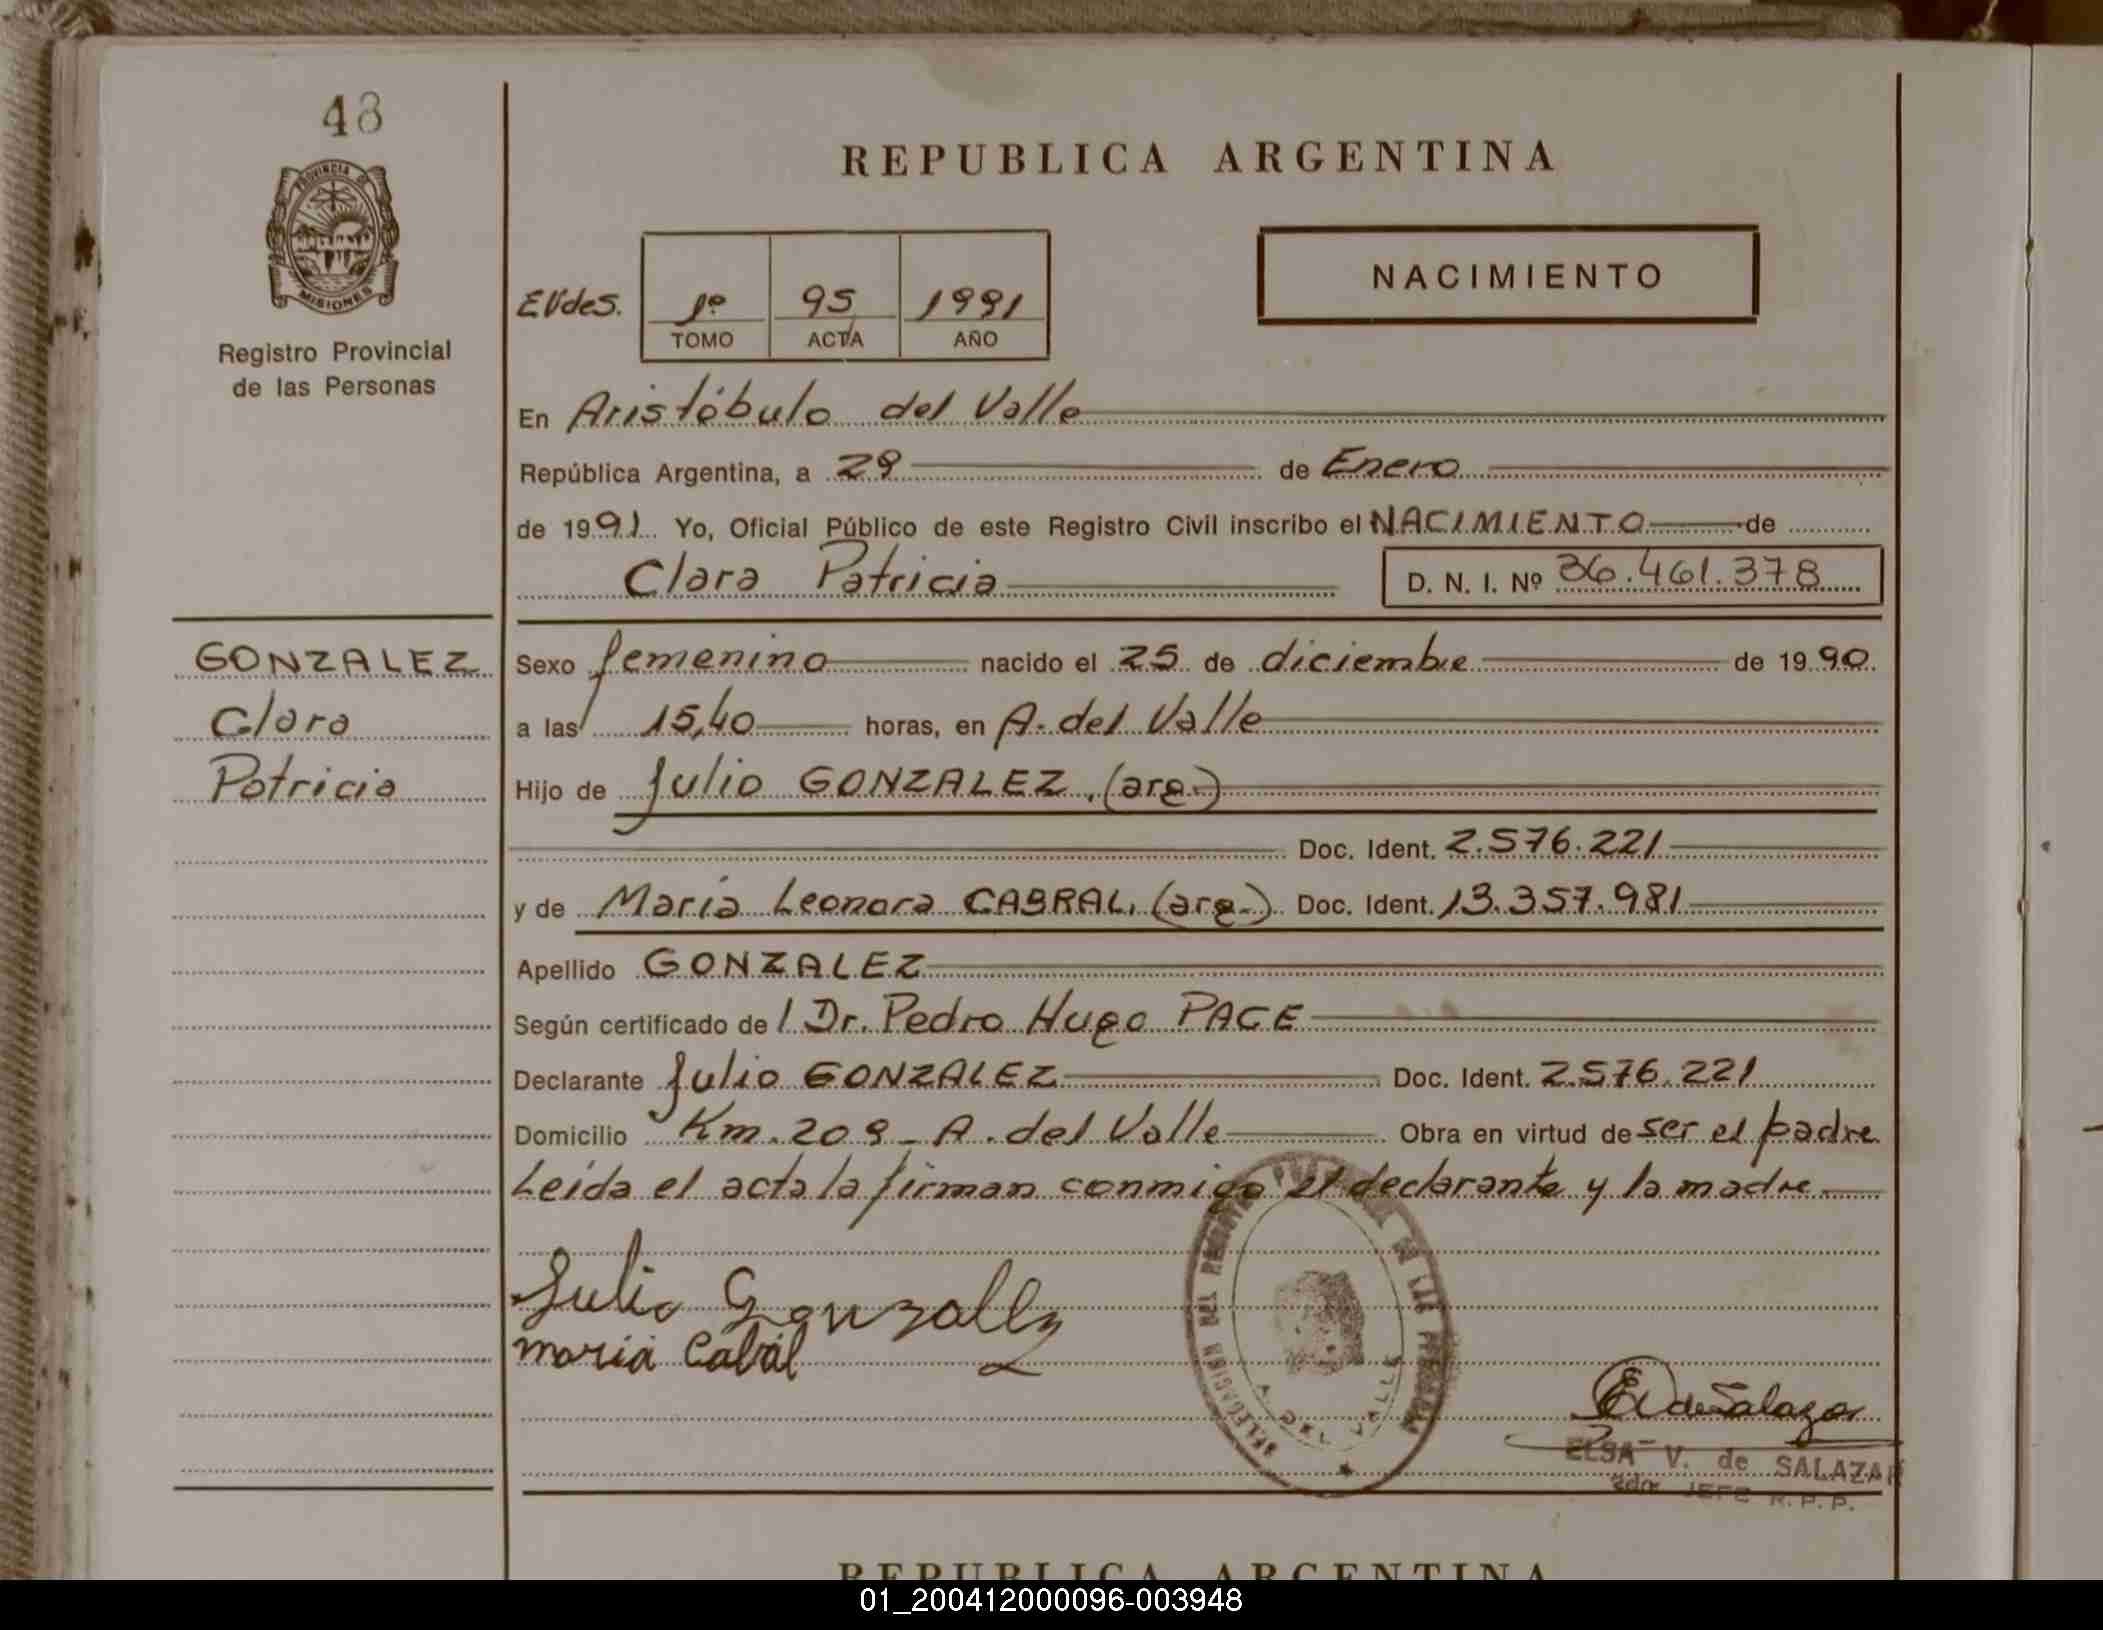 48
PROVINCIA DE
MISIONES
Registro Provincial
de las Personas
REPUBLICA ARGENTINA
NACIMIENTO
EVdeS. 1º 95 1991
TOMO ACTA AÑO
En Aristóbulo del Valle
República Argentina, a 29 de Enero
de 1991 Yo, Oficial Público de este Registro Civil inscribo el NACIMIENTO de
Clara Patricia D. N. I. Nº 36.461.378
GONZALEZ
Clara
Patricia
Sexo femenino nacido el 25 de diciembre de 1990
a las 15,40 horas, en A. del Valle
Hijo de Julio GONZALEZ, (arg.)
Doc. Ident. 2.576.221
y de María Leonora CABRAL, (arg.) Doc. Ident. 13.357.981
Apellido GONZALEZ
Según certificado de / Dr. Pedro Hugo PAGE
Declarante Julio GONZALEZ Doc. Ident. 2.576.221
Domicilio Km. 209 - A. del Valle Obra en virtud de ser el padre
Leída el acta la firman conmigo el declarante y la madre
Julio Gonzallez
maria Cabral
DELEGACION DEL REGISTRO DE LAS PERSONAS
A. DEL VALLE
EVdeSalazar
ELSA V. de SALAZAR
2do JEFE R.P.P.
REPUBLICA ARGENTINA
01_200412000096-003948